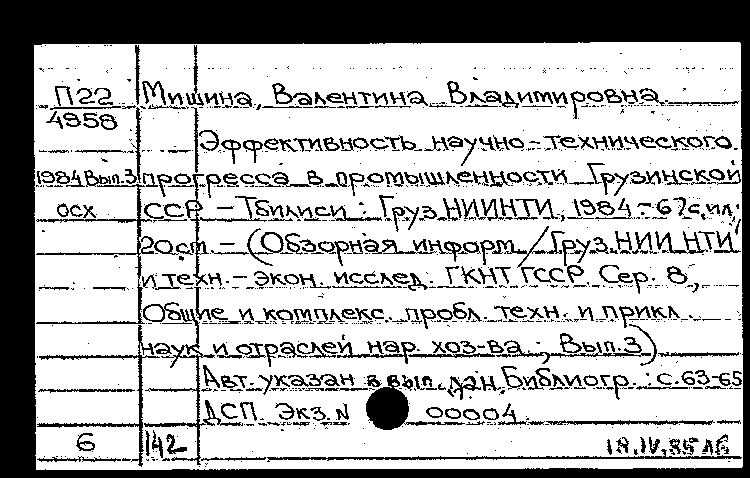 П22 Мишина, Валентина Владимировна
4958 Эффективность научно-технического
1984 Вып.3 прогресса в промышленности Грузинской
осх ССР. – Тбилиси : Груз.НИИНТИ, 1984. – 67с.ил;
20см. – (Обзорная информ. / Груз.НИИ НТИ
и техн.-экон. исслед. ГКНТ ГССР. Сер. 8,
Общие и комплекс. пробл. техн. и прикл.
наук и отраслей нар. хоз-ва. ; Вып.3)
Авт. указан в вып. дан. Библиогр.: с.63-65
ДСП. Экз. N 00004.
6 142 18.IV.85 лб